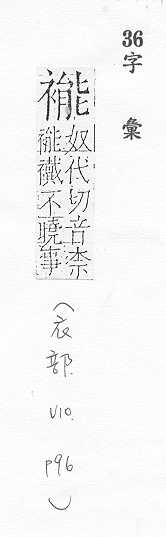 36字彙
褦
奴代切音柰
褦襶不曉事
(衣部. V10. P96)